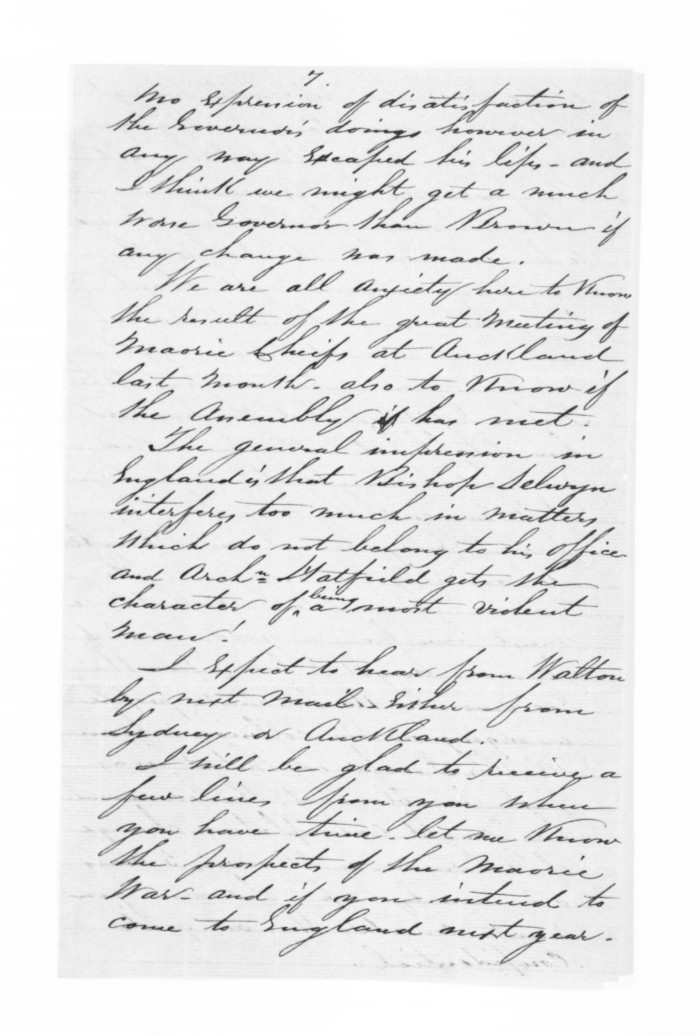 7.
No expression of disatisfaction of
the Governor's doings however in
any way escaped his lips - and
I think we might get a much
worse Governor than Brown if
any change was made.
We are all anxiety here to know
the result of the great Meeting of
Maorie Cheifs at Auckland
last month - also to know if
the Assembly if has met.
The general impression in
England is that Bishop Selwyn
interferes too much in matters
which do not belong to his office
and Archn Hatfield gets the
character of being a most violent
man!
I expect to hear from Walton
by next mail - Either from
Sydney or Auckland.
I will be glad to receive a
few lines from you when
you have time - let me know
the prospects of the Maorie
War - and if you intend to
come to England next year.